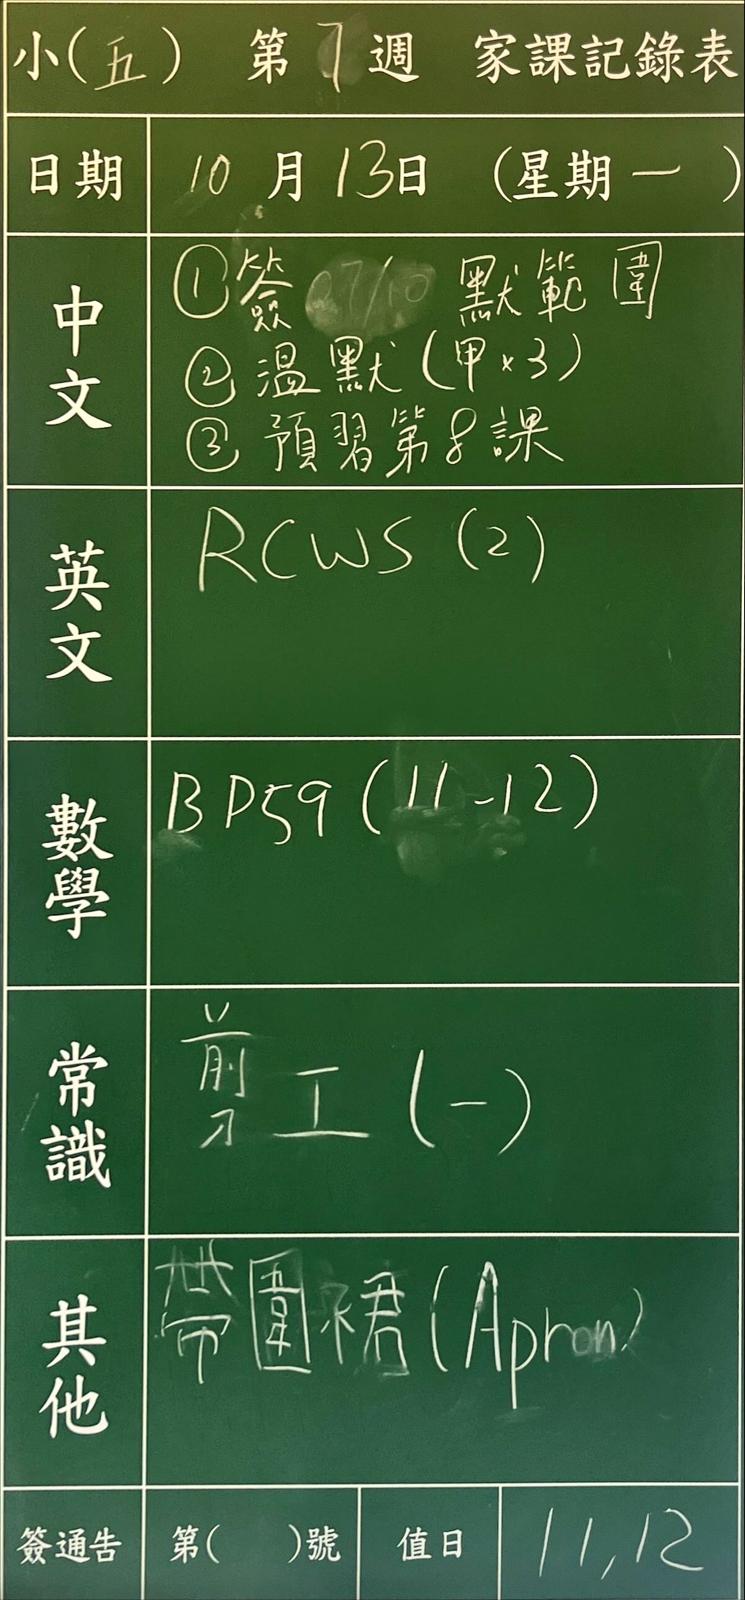 小(五) 第7週 家課記錄表
日期 10月13日 (星期一)
中文
①簽07/10 默範圍
②溫默(甲×3)
③預習第8課
英文
RCWS (2)
數學
BP59 (11-12)
常識
剪工 (一)
其他
帶圍裙(Apron)
簽通告 第( )號 值日 11,12